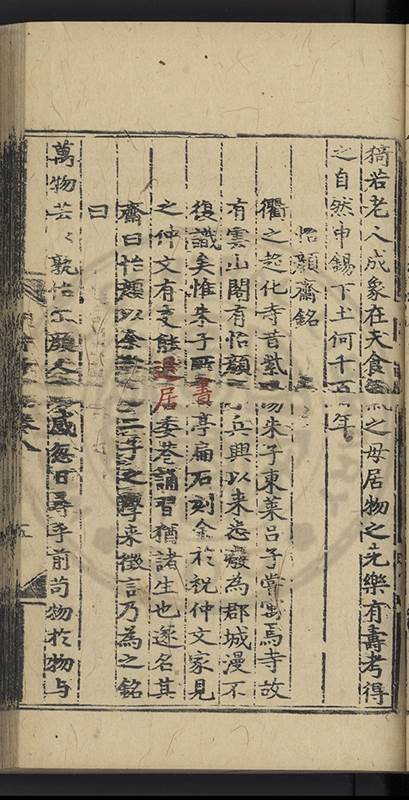 猗若老人成象在天食氣之母居物之先樂有壽考得
之自然申錫下土何千百年
怡顏齋銘
衢之超化寺昔紫陽朱子東萊呂子嘗寓焉寺故
有雲山閣有怡顏亭兵興以來悉廢為郡城漫不
復識矣惟朱子所書亭扁石刻金於祝仲文家見
之仲文有文 退居委巷誦習猶諸生也遂名其
齋曰怡顏以余 二子之學來徵言乃為之銘
曰
萬物芸々孰怡 顏人 感忽日尋乎前苟物於物与
卷八
五